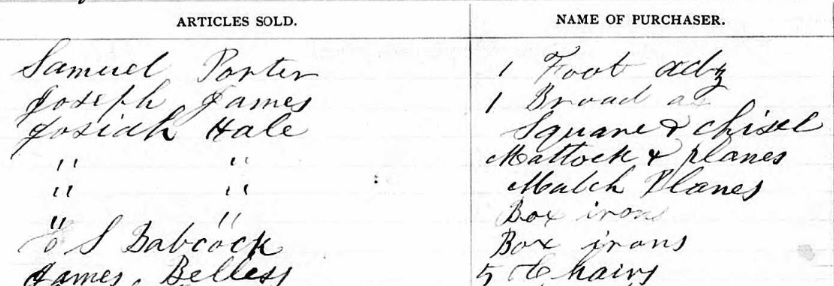 ARTICLES SOLD. NAME OF PURCHASER.
Samuel Porter 1 Foot adz
Joseph James 1 Broad ax
Josiah Hale Square & chisel
" " Mattock & planes
" " Match Planes
" " Box irons
S Babcock Box irons
James Belless 5 Chairs